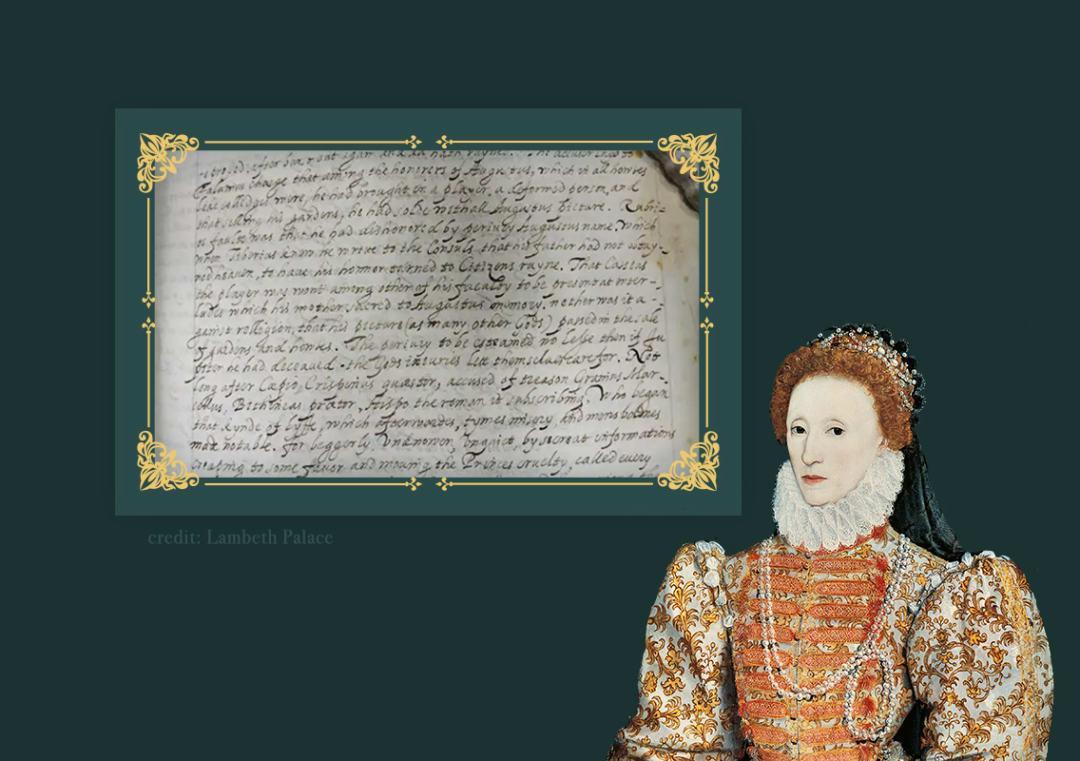 after
Falanius charge that among the honorers of Augustus, which in all howses
like colledges were, he had brought in a player, a deformed person, and
that selling his gardens, he had solde withall Augustus Picture. Rubri-
us faulte was that he had dishonored by periury Augustus name. Which
when Tiberius knew he wrote to the Consuls, that his father had not
heaven, to have his honnor turned to Citizens rayne. That Cassius
the player was wont among other of his faculty to be present at inter-
ludes which his mother sacred to Augustus memory, nether was it a-
gainst relligion, that his picture (as many other Gods) passed in the sale
of gardens and howses. The periury to be esteamed no lesse then if Ju
piter he had deceaued. the Gods iniuries lett themselues care for. Not
long after Cæpio Crispinus quæstor, accused of treason Granius Mar-
cellus, Bithinias prætor, Hispo the roman it subscribing. Who began
that kynde of lyffe, which afterwardes, tymes misery, and mens boldnes
made notable. For beggerly, Unknowen, Unquiet, by secreat informations
creaping to some favor and mouing the Princes cruelty, called euery
credit: Lambeth Palace